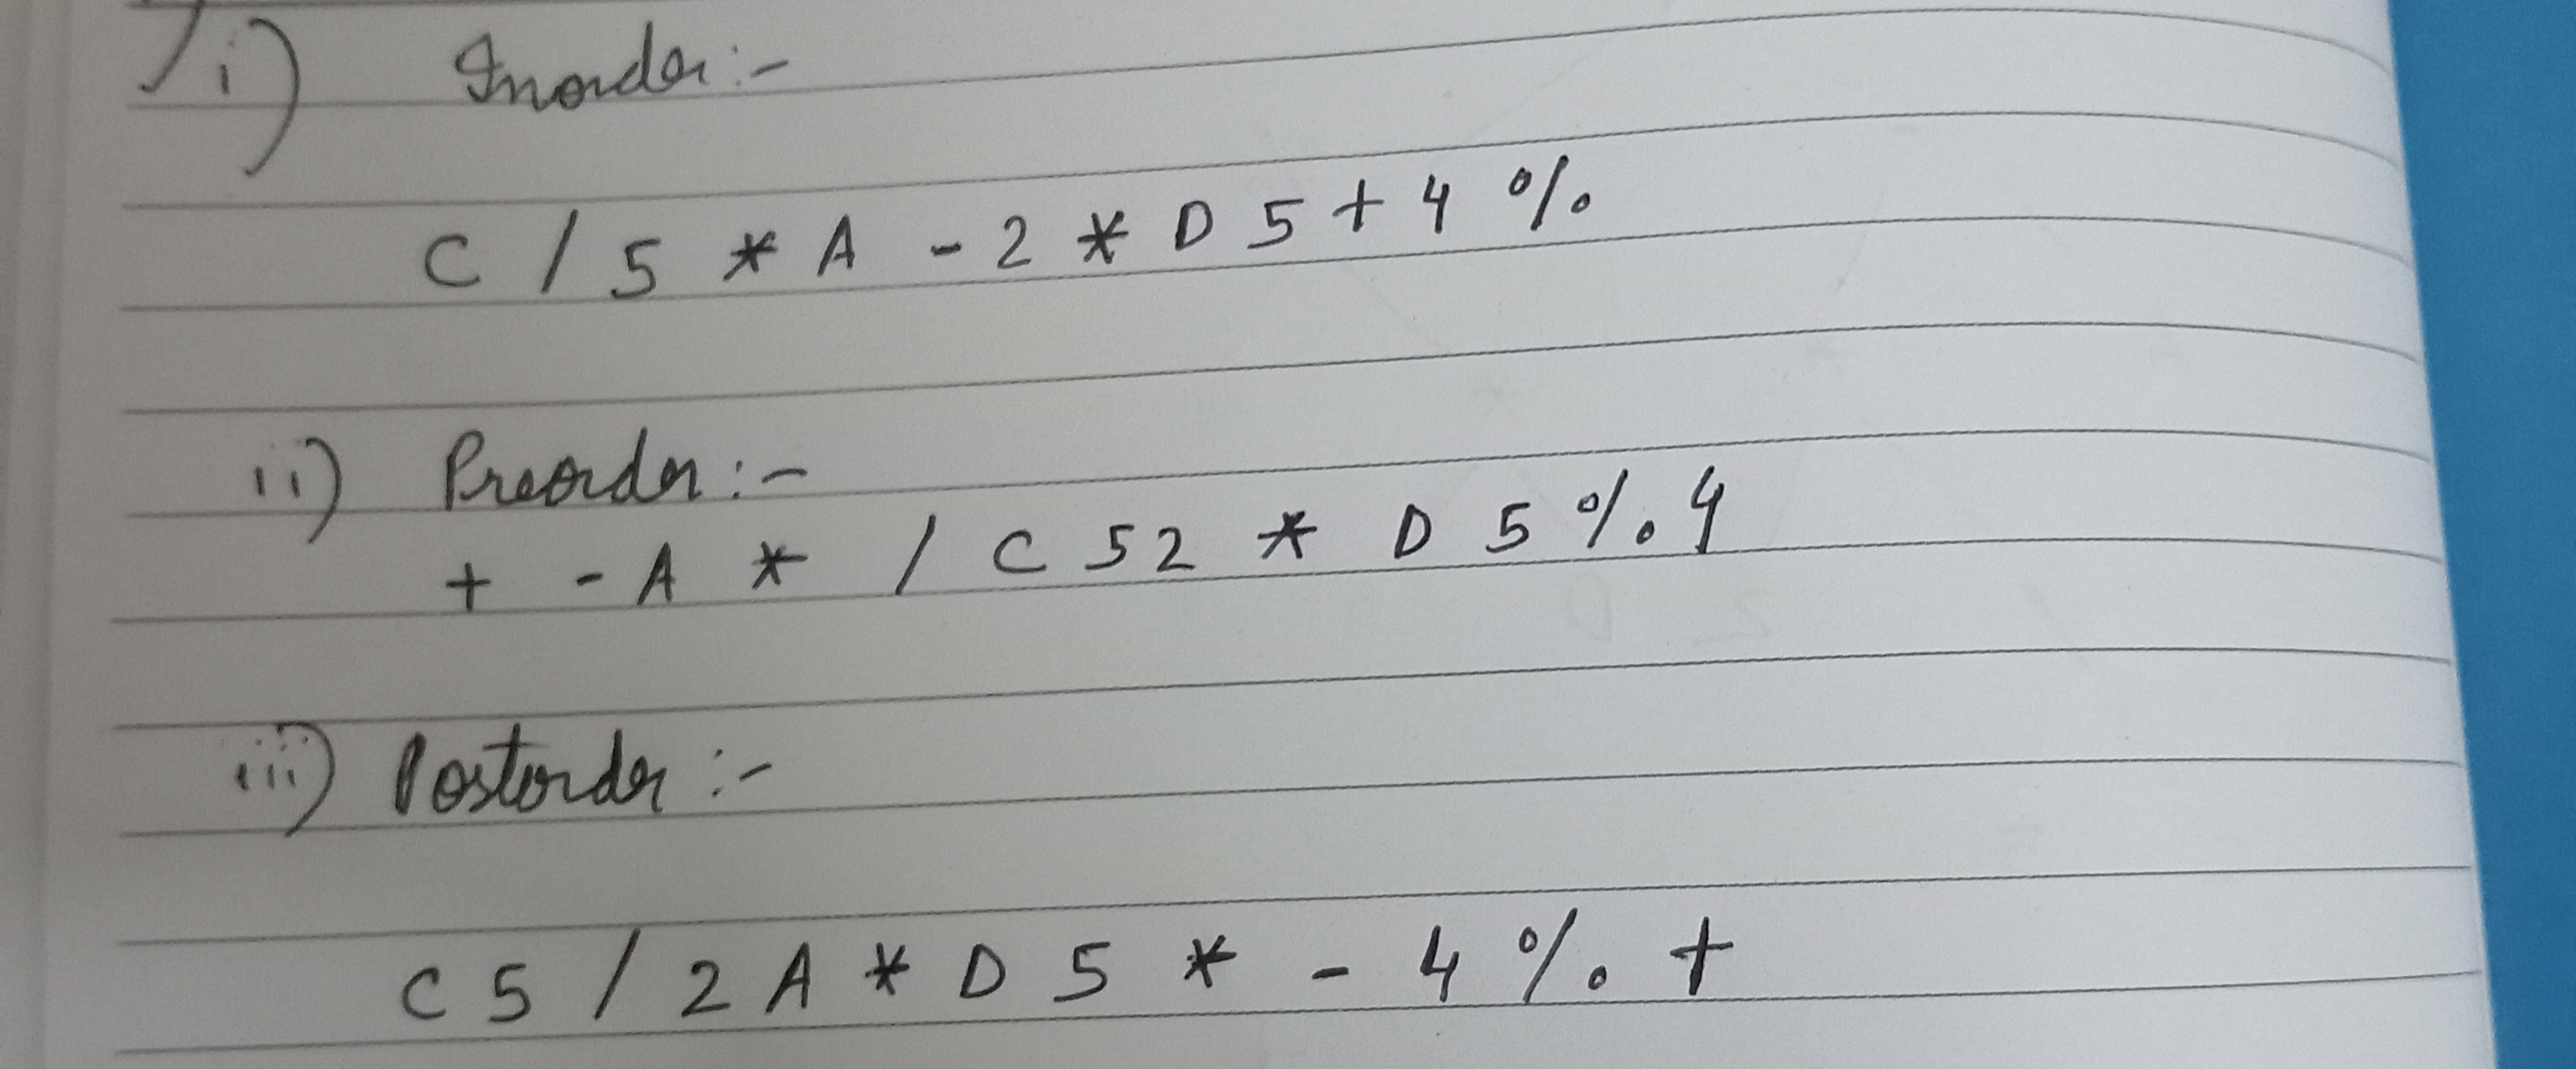 i) Inorder :-
C / 5 * A - 2 * D 5 + 4 %
ii) Preorder :-
+ - A * / C 5 2 * D 5 % 4
iii) Postorder :-
C 5 / 2 A * D 5 * - 4 % +